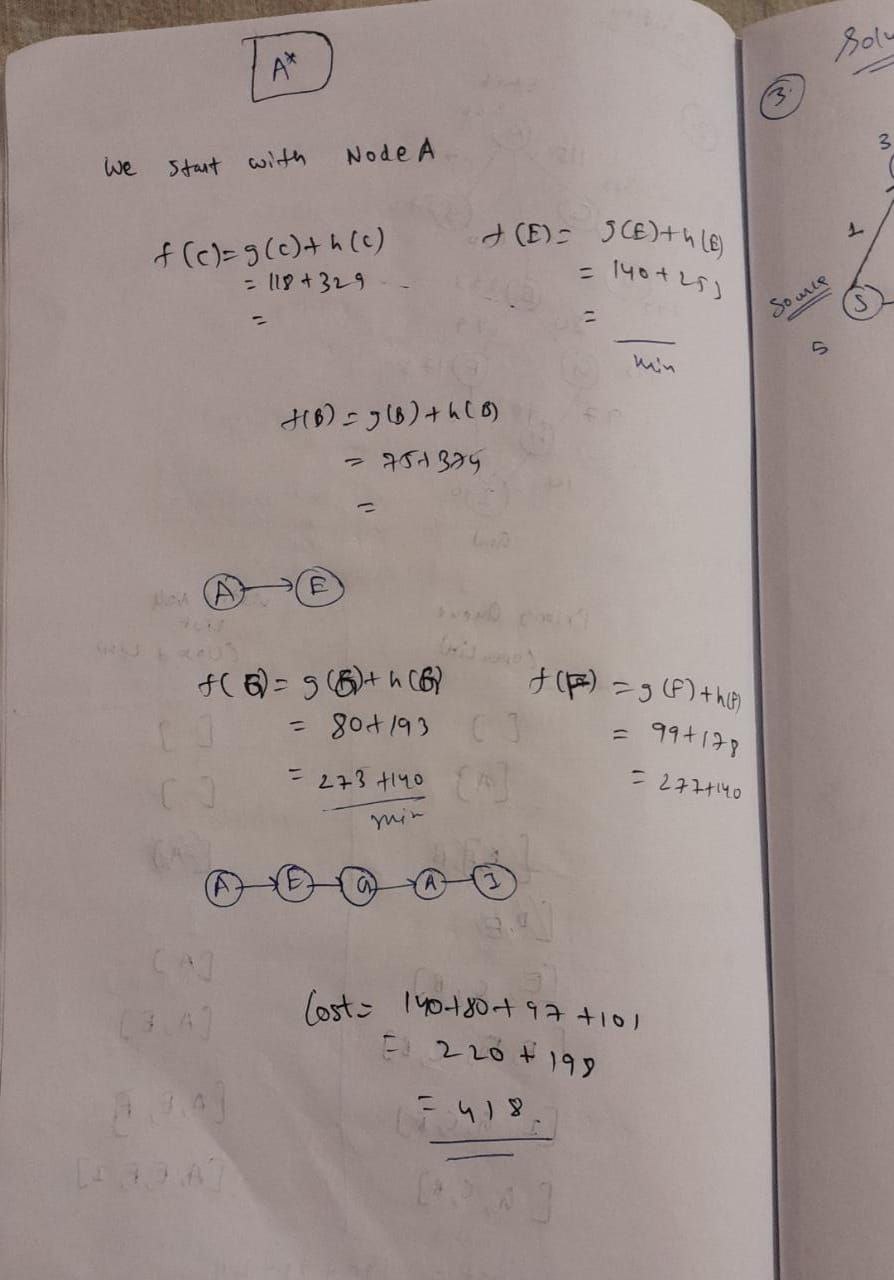 A*
We start with Node A
f(C) = g(C) + h(C)
= 118 + 329
=
f(E) = g(E) + h(E)
= 140 + 253
=
min
f(B) = g(B) + h(B)
= 75 + 374
=
A → E
f(G) = g(G) + h(G)
= 80 + 193
= 273 + 140
min
f(F) = g(F) + h(F)
= 99 + 178
= 277 + 140
A → E → G → A → I
Cost = 140 + 80 + 97 + 101
= 220 + 198
= 418
3
1
Source
S
5